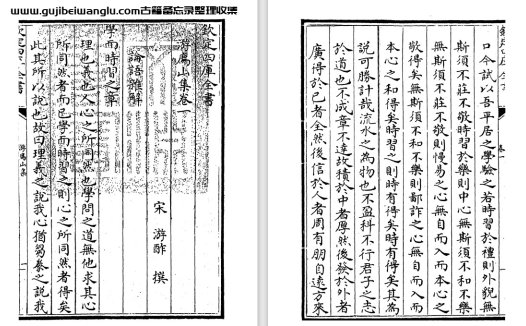 www.gujibeiwanglu.com古籍备忘录整理收集
欽定四庫全書
游廌山集卷一
宋 游酢 撰
論語雜解
學而時習之章
理也義也人心之所同然也學問之道無他求其心
所同然者而已學而時習之則心之所同然者得矣
此其所以說也故曰理義之說我心猶芻豢之說我
欽定四庫全書
游廌山集
一
口今試以吾平居之學驗之若時習於禮則外貌無
斯須不莊不敬時習於樂則中心無斯須不和不樂
無斯須不莊不敬則慢易之心無自而入而本心之
敬得矣無斯須不和不樂則鄙詐之心無自而入而
本心之和得矣時習之則時有得矣時有得矣其為
說可勝計哉流水之為物也不盈科不行君子之志
於道也不成章不達故積於中者厚然後發於外者
廣得於己者全然後信於人者周有朋自遠方來